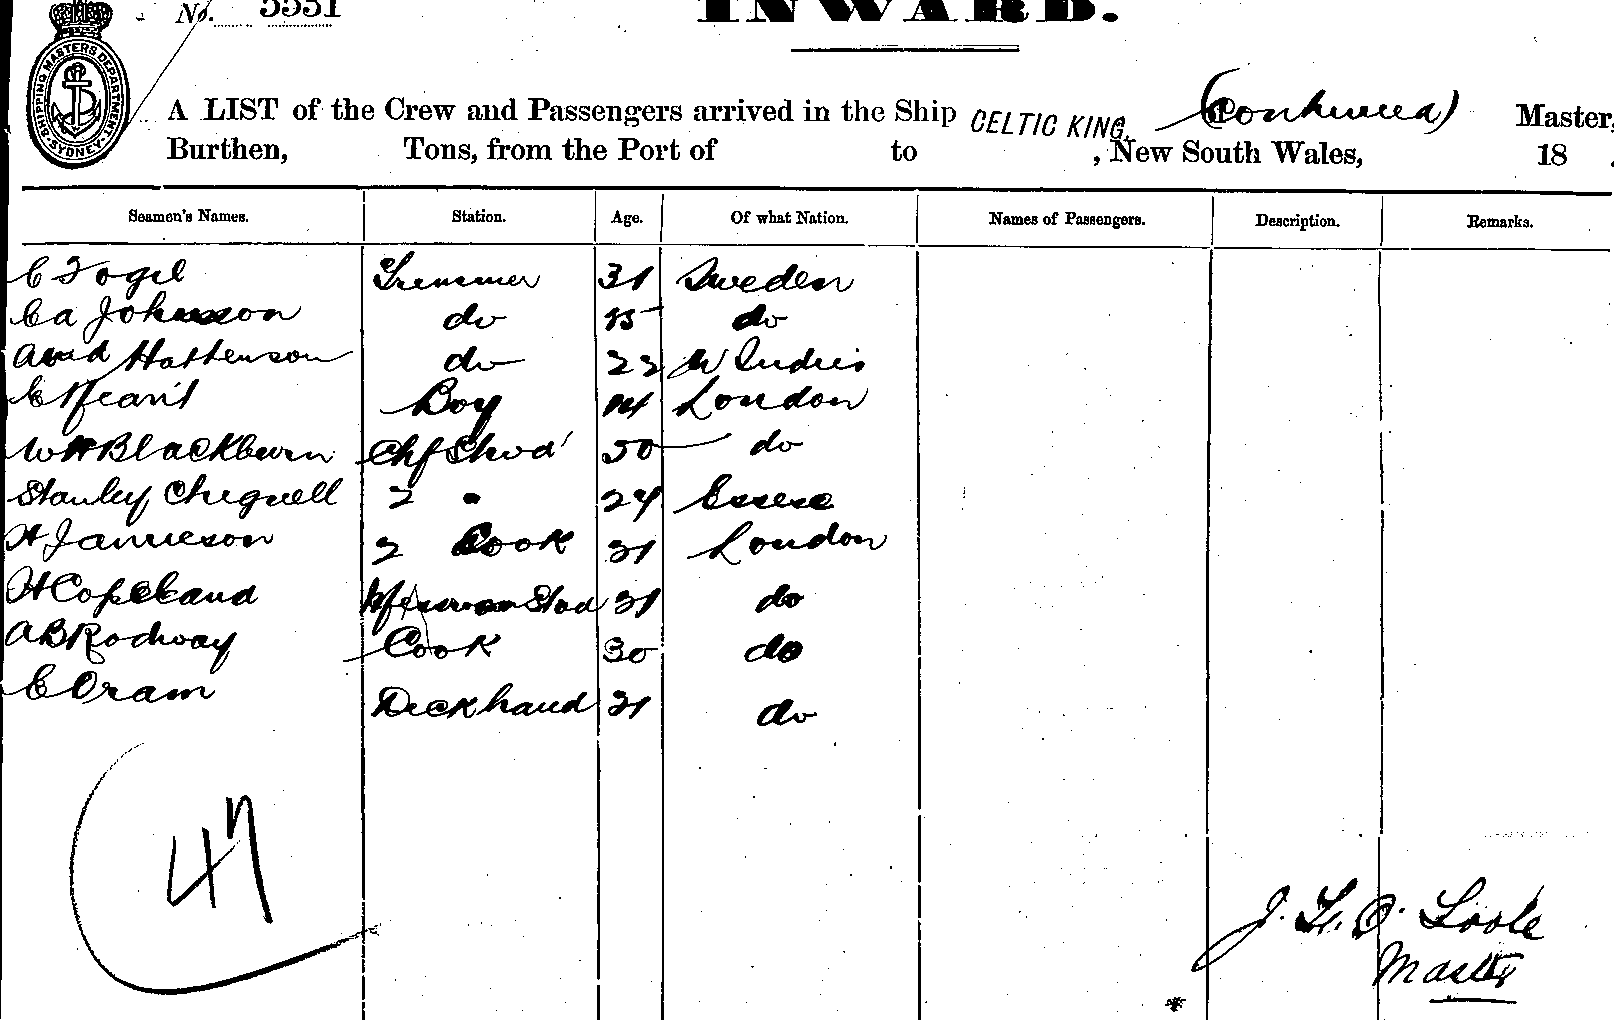 No. 5551
INWARD.
SHIPPING MASTERS DEPARTMENT SYDNEY
A LIST of the Crew and Passengers arrived in the Ship CELTIC KING (Continued) Master,
Burthen, Tons, from the Port of to , New South Wales, 18 .
Seamen's Names. Station. Age. Of what Nation. Names of Passengers. Description. Remarks.
C Vogel Trimmer 31 Sweden
Ca Johnson do do
Hattenson do 22 W Indies
Boy 14 London
WH Blackburn Chf Stwd 50 do
Stanley Chignell 2 " 24 Essex
H Jamieson 2 Cook 31 London
H Copeland Stwd 31 do
AB Rodway Cook 30 do
C Oram Deckhand 31 do
47
Master